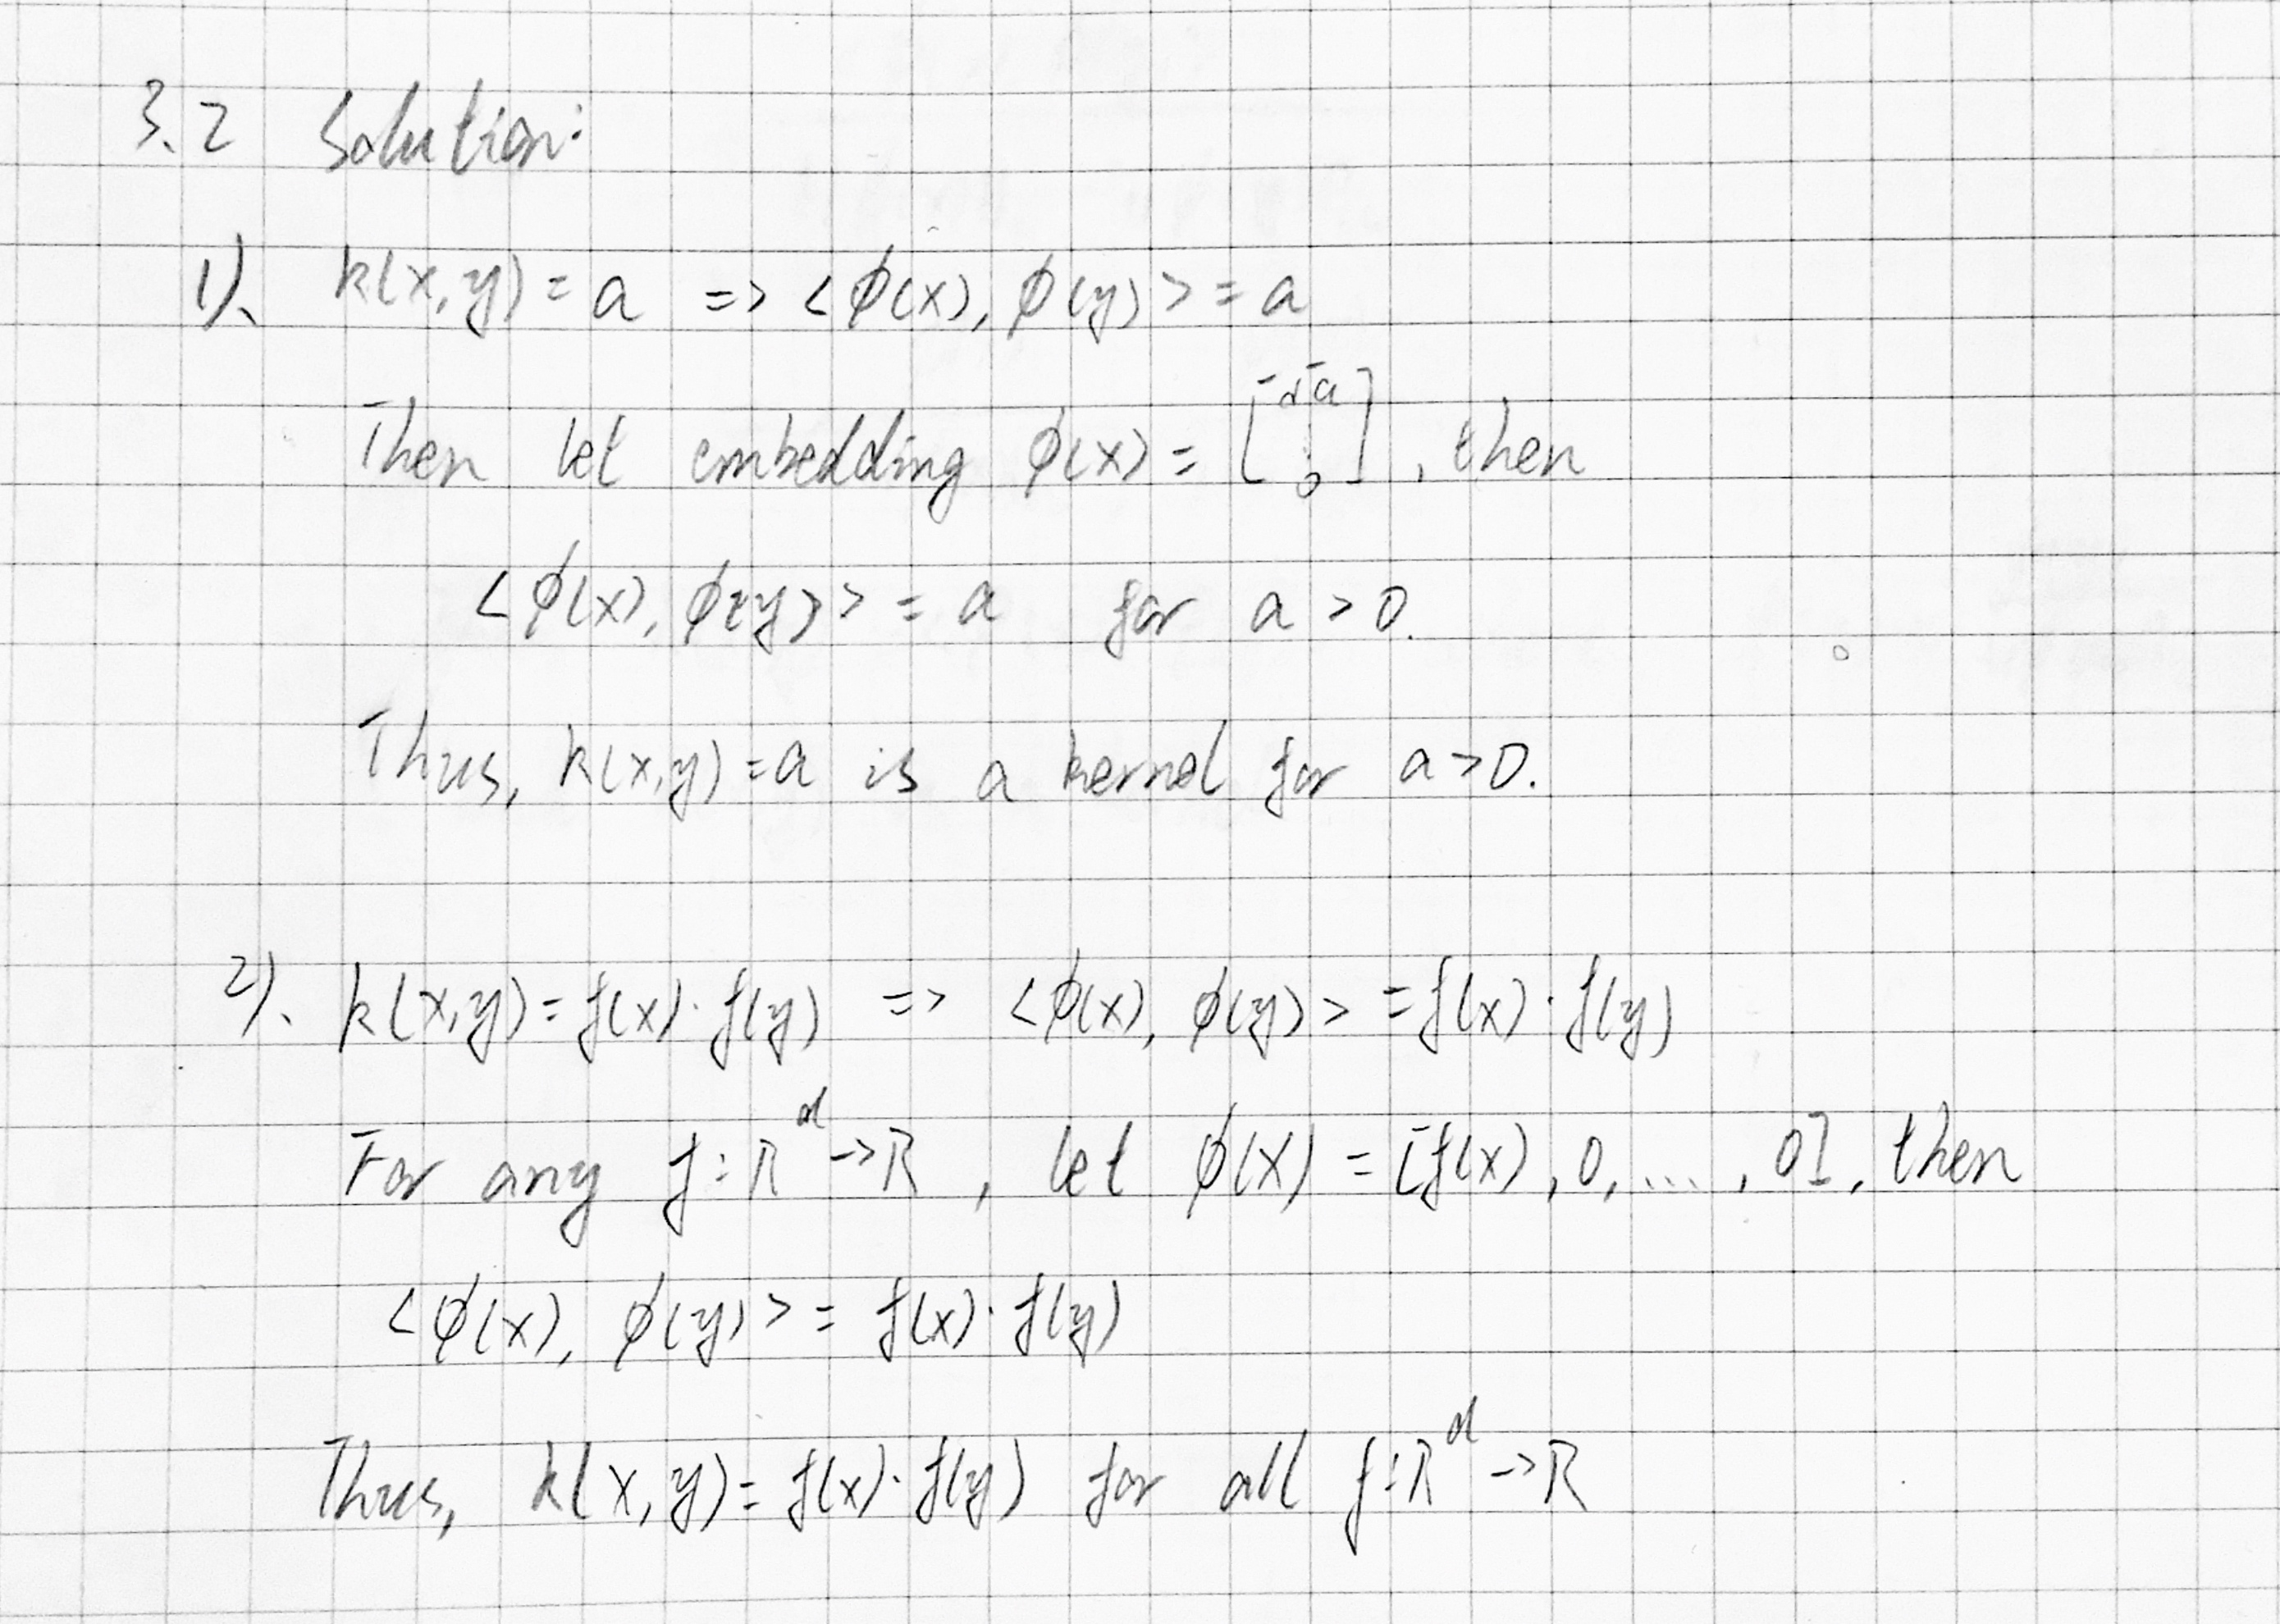 3.2 Solution:
1). k(x,y) = a => <ϕ(x), ϕ(y)> = a
Then let embedding ϕ(x) = [√a ⋮ 0], then
<ϕ(x), ϕ(y)> = a for a > 0.
Thus, k(x,y) = a is a kernel for a > 0.
2). k(x,y) = f(x)·f(y) => <ϕ(x), ϕ(y)> = f(x)·f(y)
For any f: ℝ^d -> ℝ, let ϕ(x) = [f(x), 0, ..., 0], then
<ϕ(x), ϕ(y)> = f(x)·f(y)
Thus, k(x,y) = f(x)·f(y) for all f: ℝ^d -> ℝ